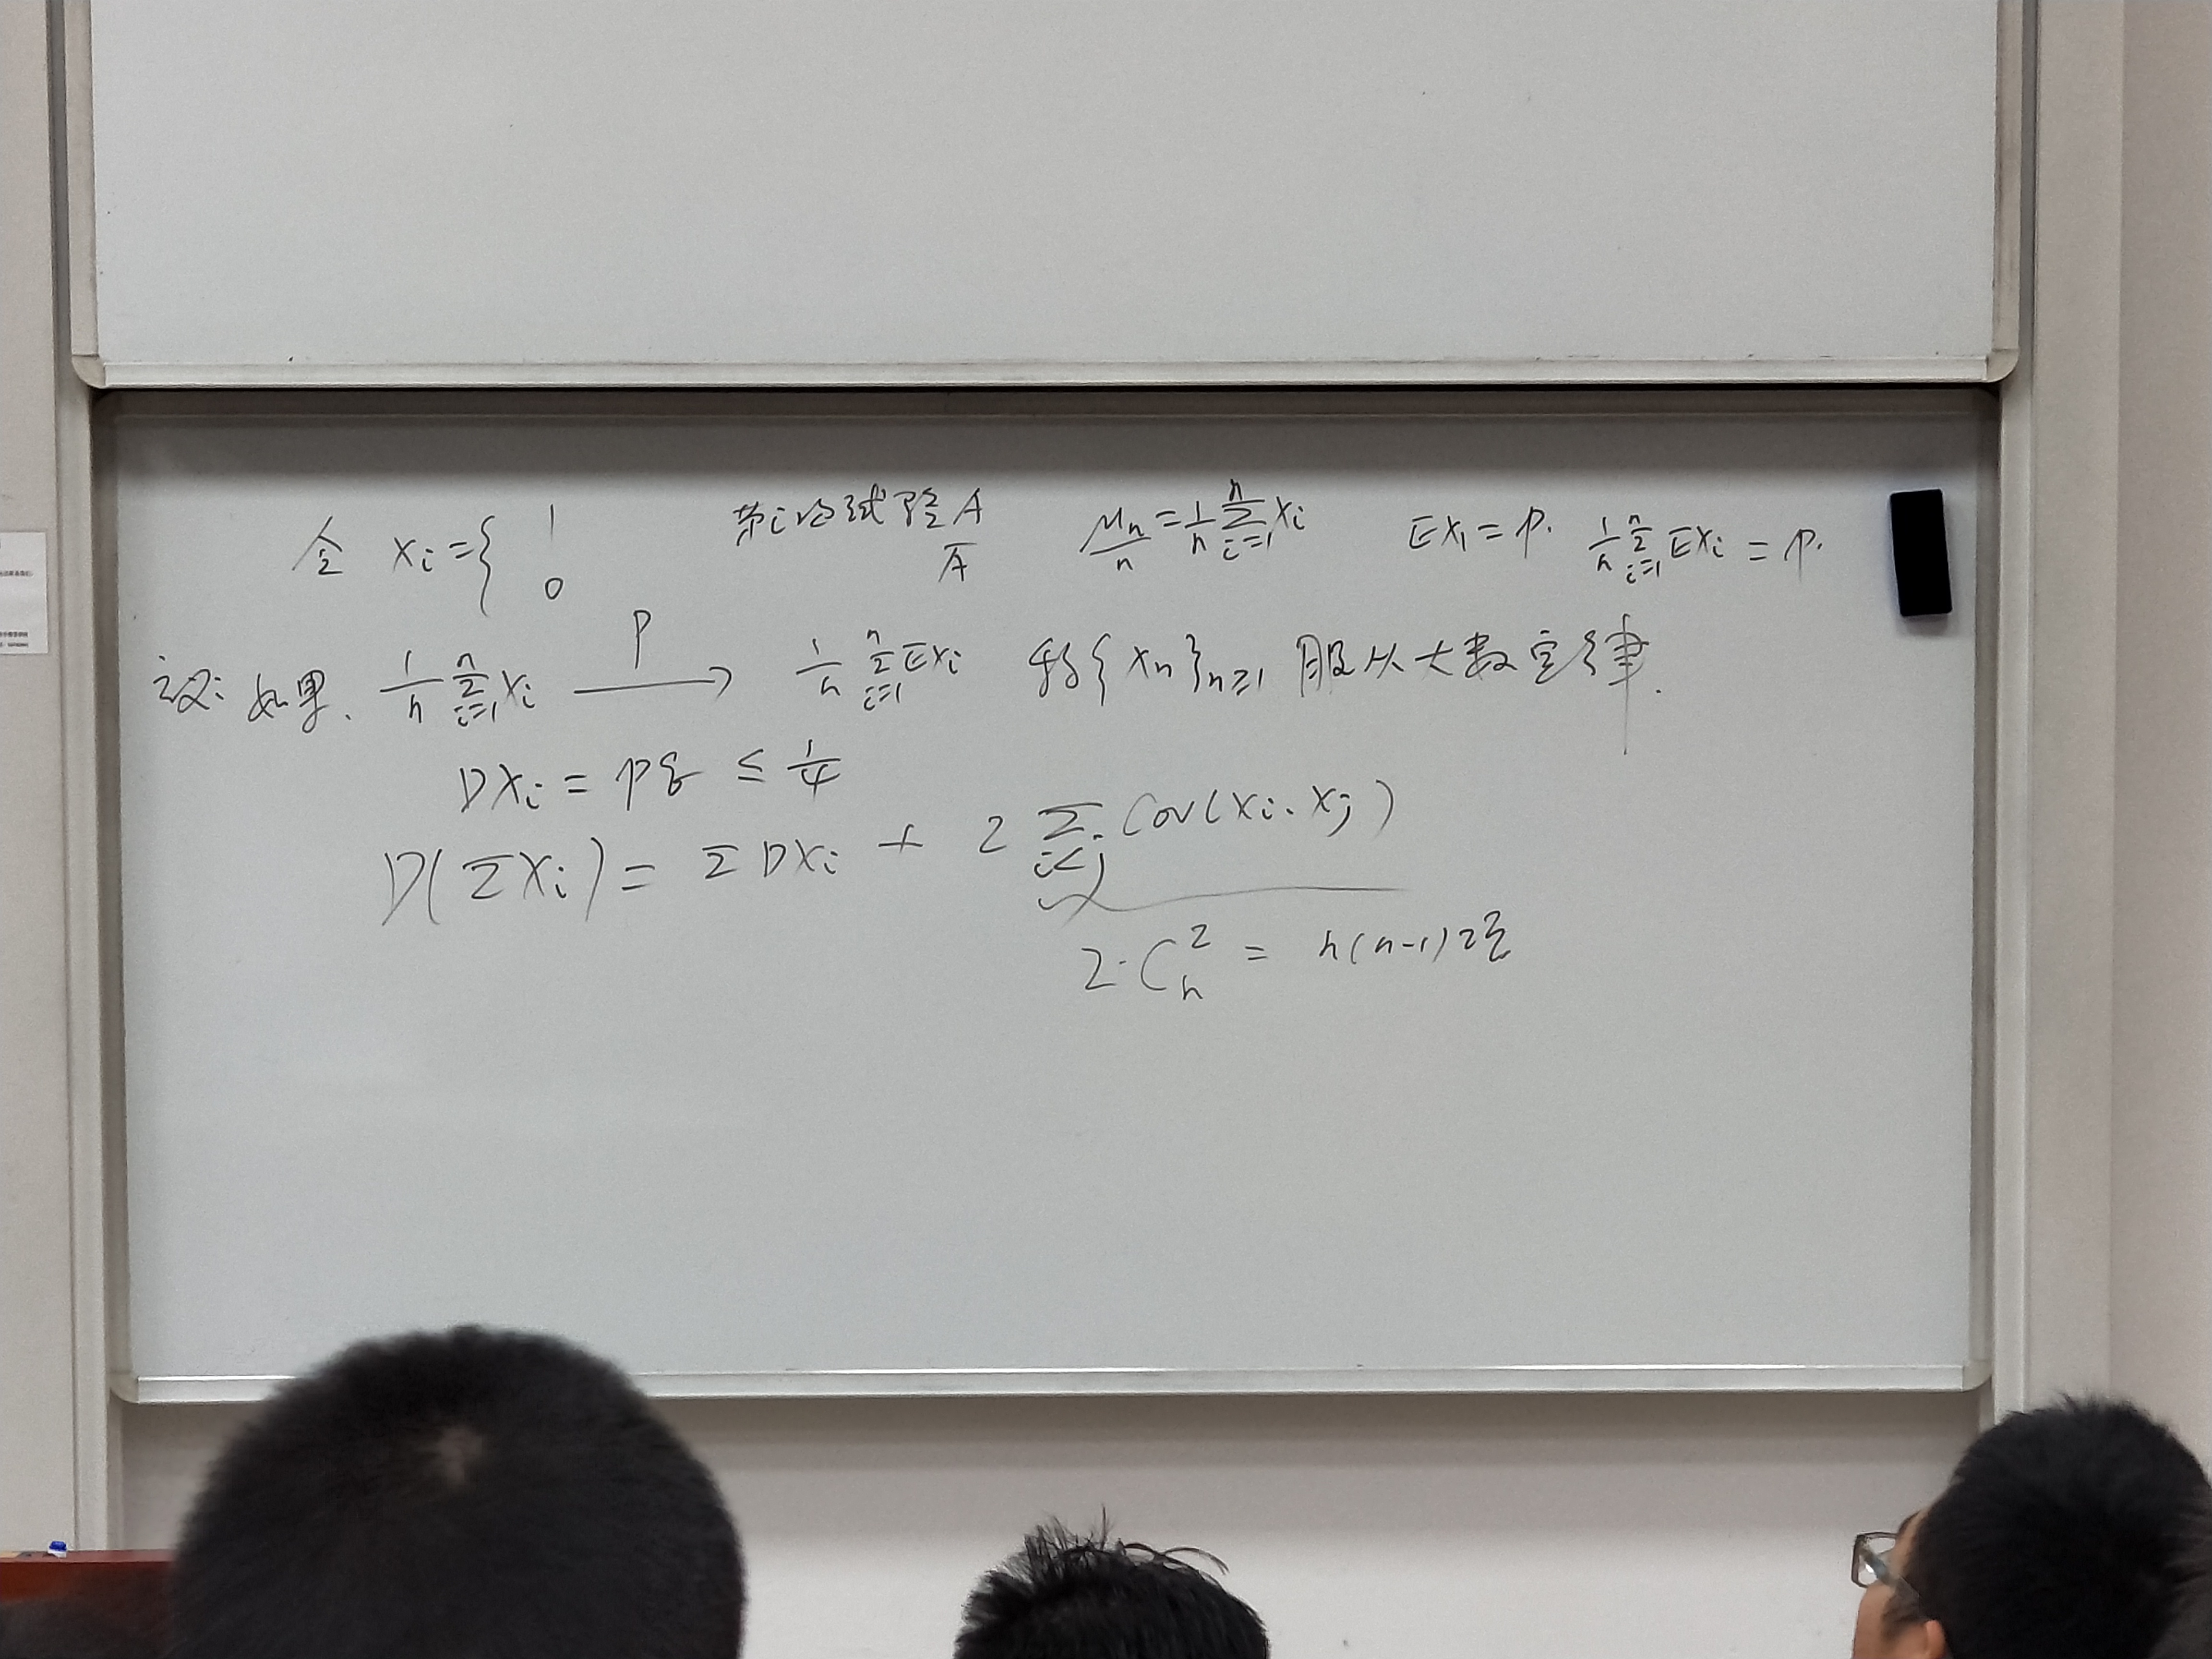 令 Xi = { 1 第i次试验 A μn/n = 1/n Σ_{i=1}^{n} Xi EX₁ = p. 1/n Σ_{i=1}^{n} EXi = p.
0 Ā
定义: 如果. 1/n Σ_{i=1}^{n} Xi —P→ 1/n Σ_{i=1}^{n} EXi 称{Xn}_{n≥1} 服从大数定律.
DXi = pq ≤ 1/4
D(ΣXi) = ΣDXi + 2 Σ_{i<j} Cov(Xi, Xj)
2·C_n^2 = n(n-1)